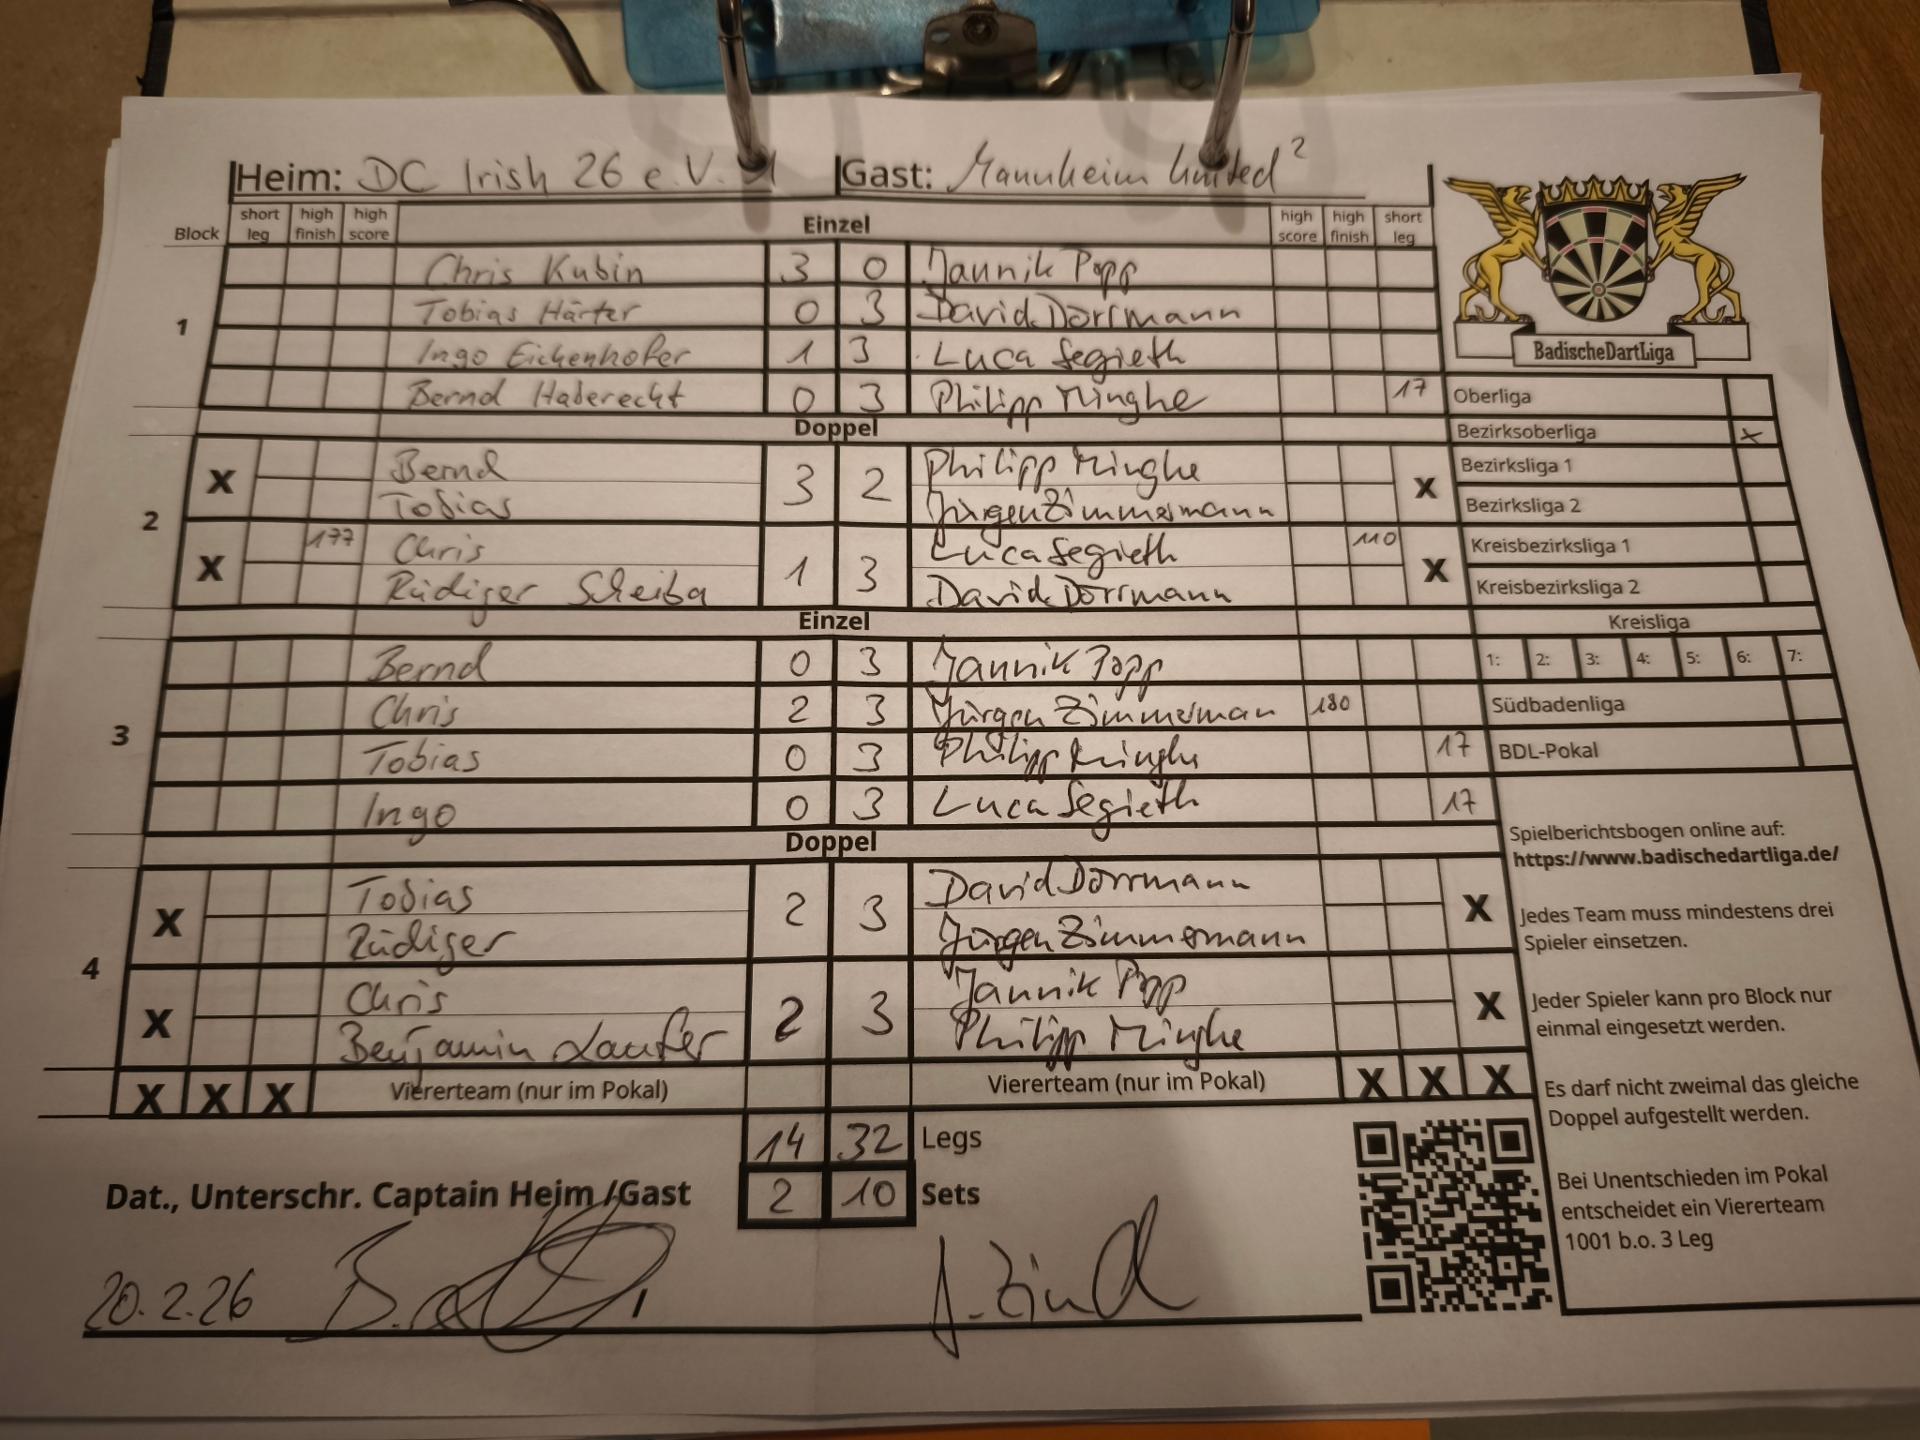 Heim: DC Irish 26 e.V. 1 Gast: Mannheim United 2
Block short leg high finish high score Einzel high score high finish short leg
1
Chris Kubin 3 0 Jannik Popp
Tobias Härter 0 3 David Dörrmann
Ingo Eichenhofer 1 3 Luca Segieth
Bernd Haberecht 0 3 Philipp Minghe 17
Doppel
2
X Bernd 3 2 Philipp Minghe X
Tobias Jürgen Zimmermann
X 177 Chris 1 3 Luca Segieth 110 X
Rüdiger Scheiba David Dörrmann
Einzel
3
Bernd 0 3 Jannik Popp
Chris 2 3 Jürgen Zimmerman 180
Tobias 0 3 Philipp Minghe 17
Ingo 0 3 Luca Segieth 17
Doppel
4
X Tobias 2 3 David Dörrmann X
Rüdiger Jürgen Zimmermann
X Chris 2 3 Jannik Popp X
Benjamin Laufer Philipp Minghe
X X X Viererteam (nur im Pokal) Viererteam (nur im Pokal) X X X
14 32 Legs
2 10 Sets
Dat., Unterschr. Captain Heim /Gast
20.2.26
BadischeDartLiga
Oberliga
Bezirksoberliga x
Bezirksliga 1
Bezirksliga 2
Kreisbezirksliga 1
Kreisbezirksliga 2
Kreisliga
1: 2: 3: 4: 5: 6: 7:
Südbadenliga
BDL-Pokal
Spielberichtsbogen online auf:
https://www.badischedartliga.de/
Jedes Team muss mindestens drei
Spieler einsetzen.
Jeder Spieler kann pro Block nur
einmal eingesetzt werden.
Es darf nicht zweimal das gleiche
Doppel aufgestellt werden.
Bei Unentschieden im Pokal
entscheidet ein Viererteam
1001 b.o. 3 Leg